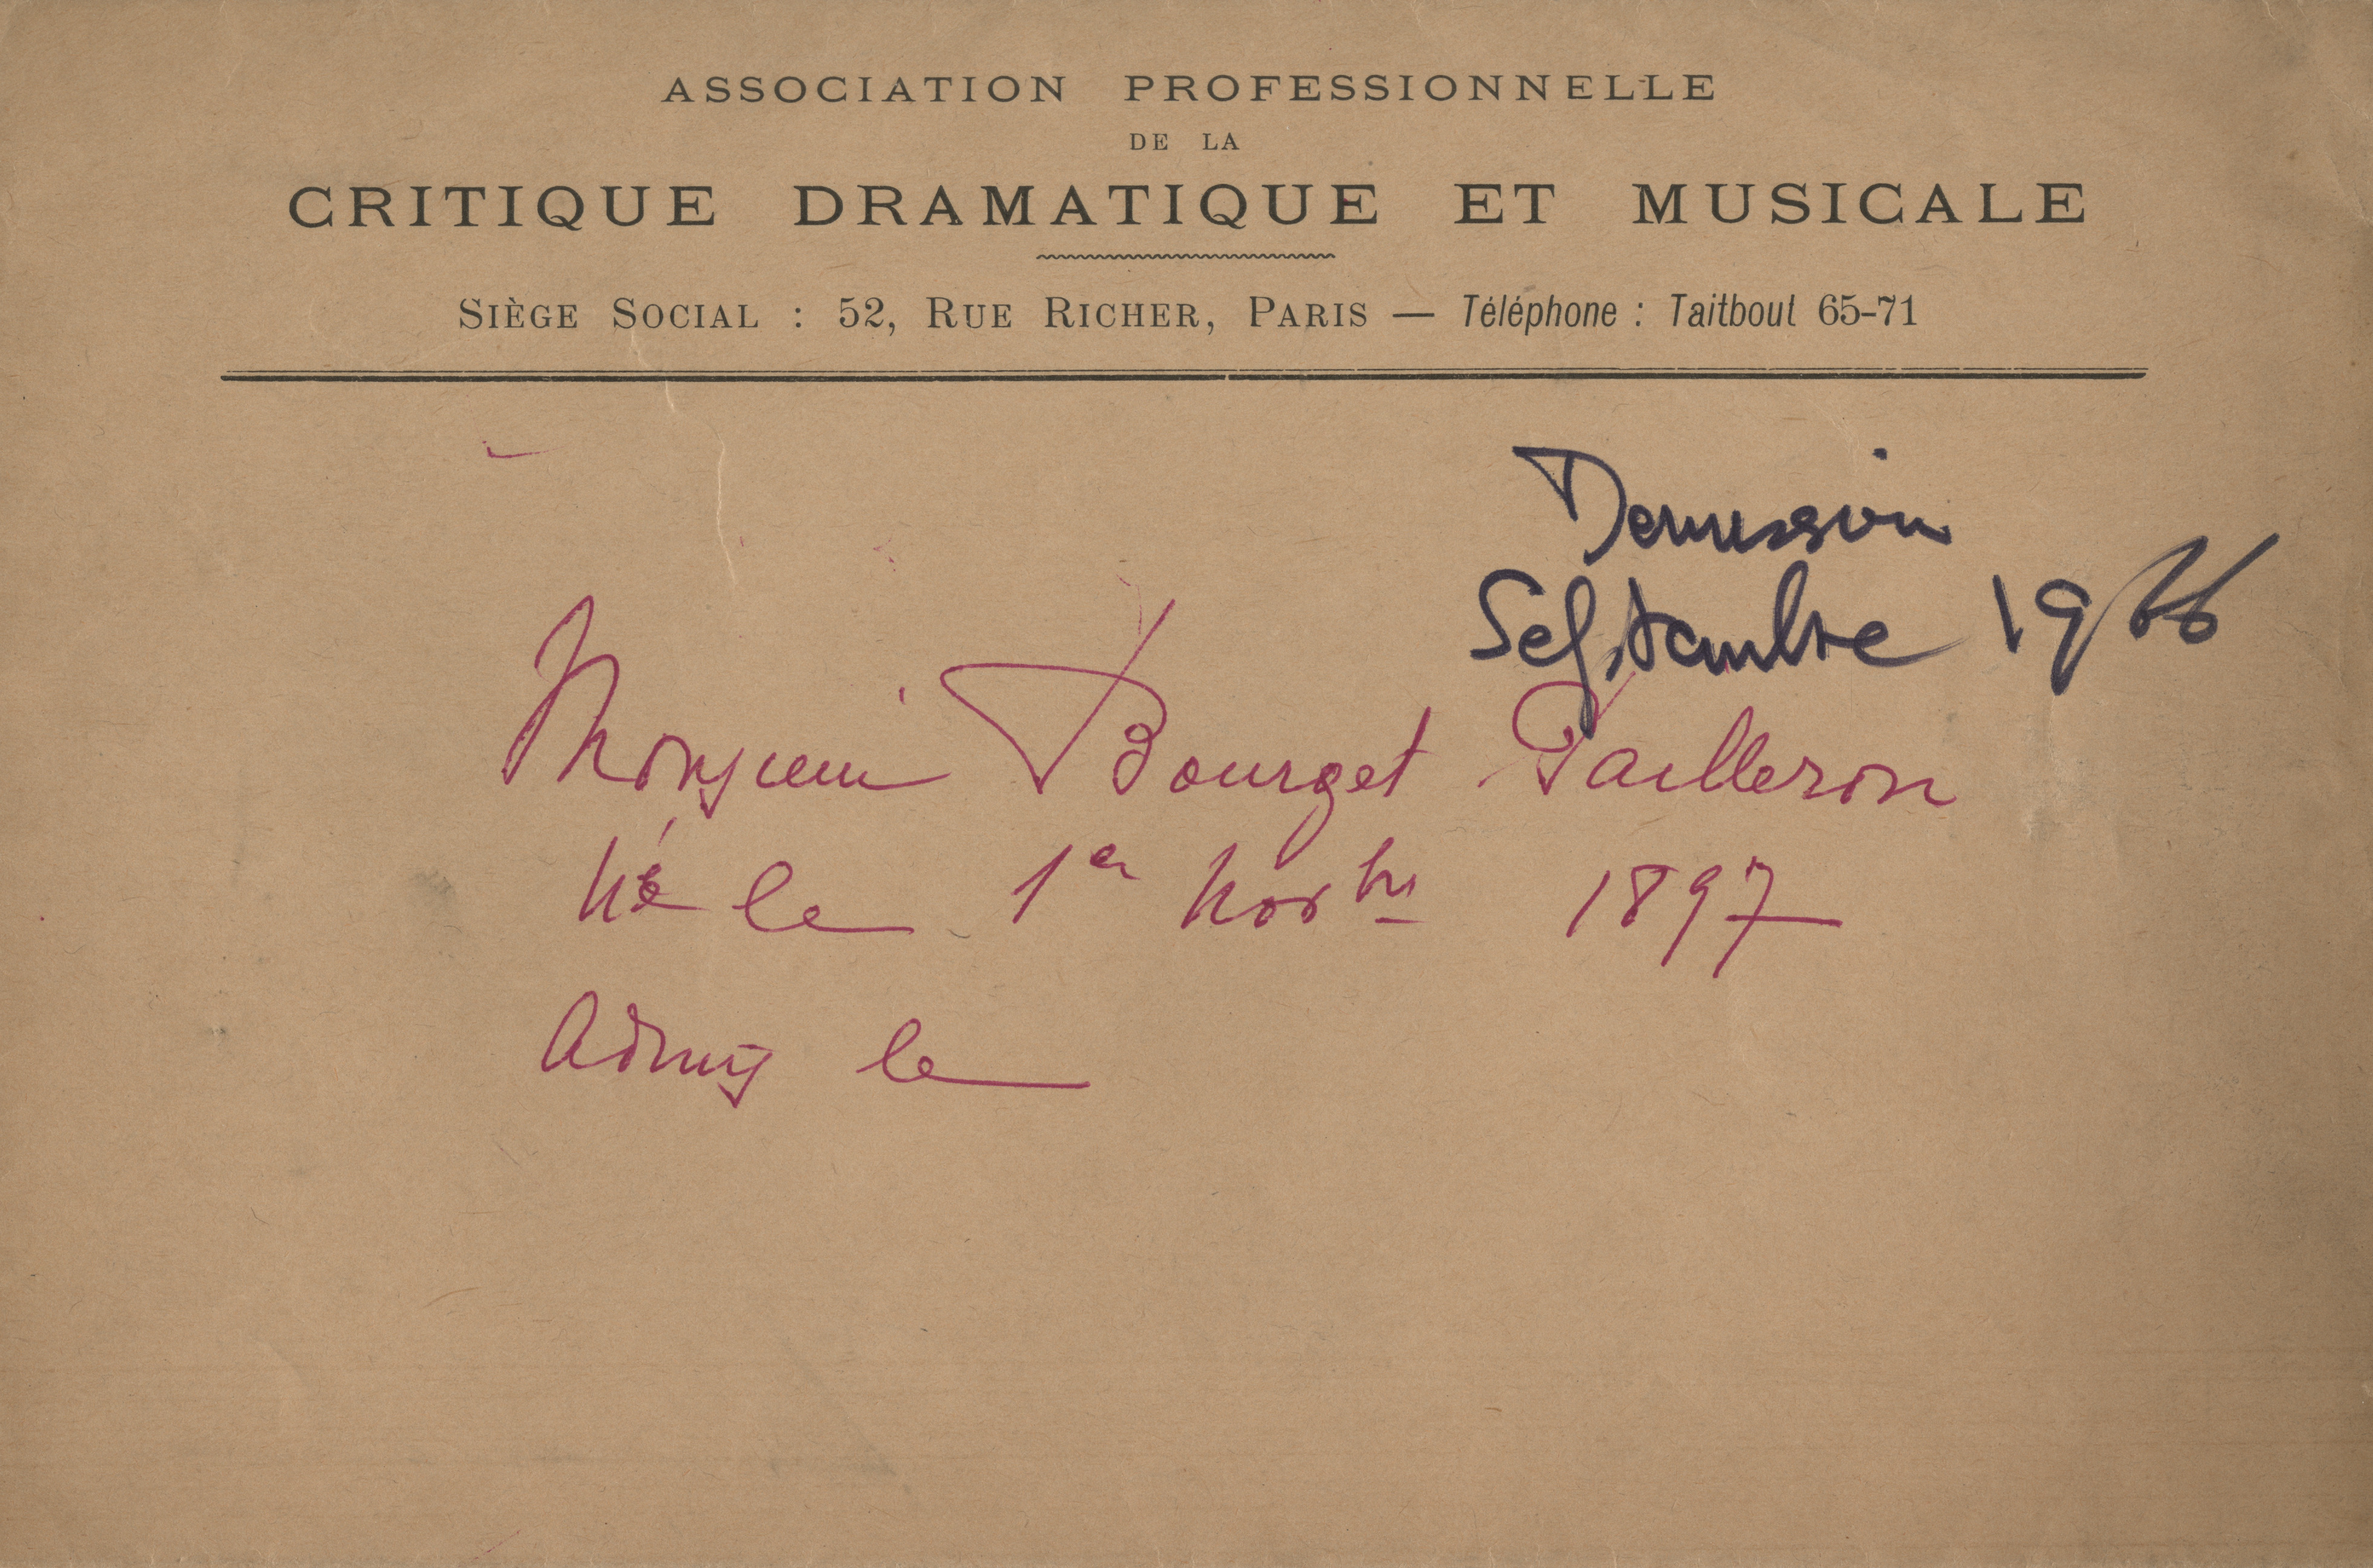 ASSOCIATION PROFESSIONNELLE
DE LA
CRITIQUE DRAMATIQUE ET MUSICALE
SIÈGE SOCIAL : 52, RUE RICHER, PARIS — Téléphone : Taitbout 65-71
Demission
Septembre 1966
Monsieur Bourget Pailleron
Né le 1er Novbre 1897
Admis le